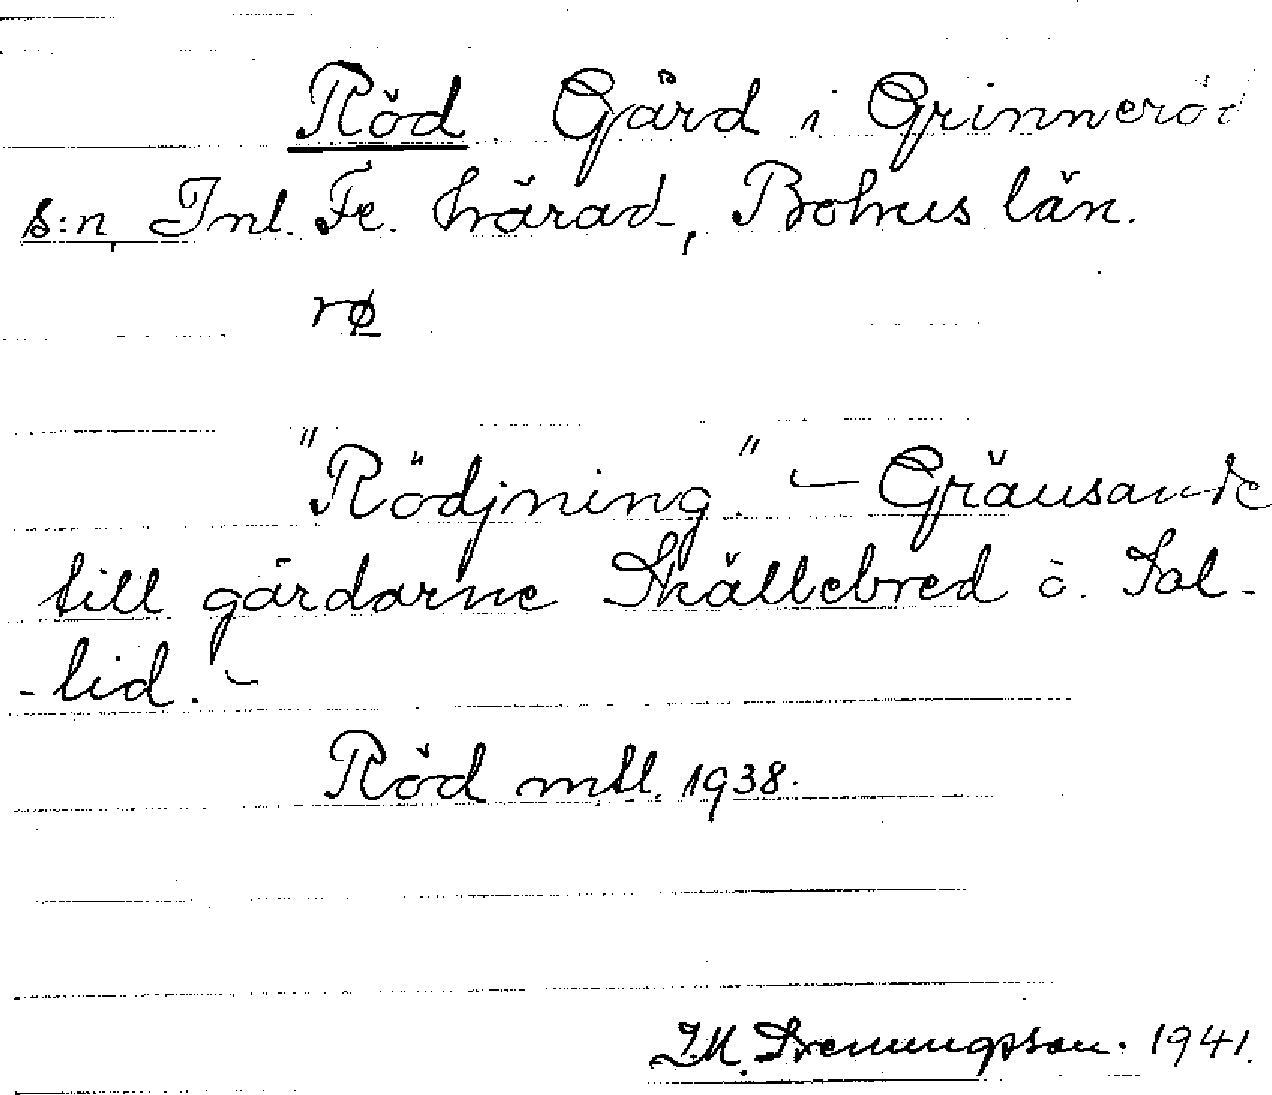 Röd. Gård i Grinneröd
s:n, Inl. Fr. härad, Bohus län.
rø
"Rödjning." – Gränsande
till gårdarne Skällebred o. Sol-
-lid. –
Röd mtl. 1938.
1941.